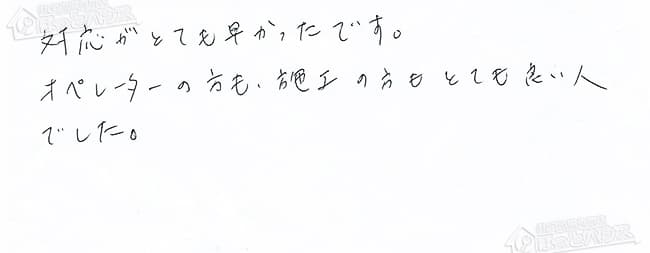 対応がとても早かったです。
オペレーターの方も、施工の方もとても良い人
でした。